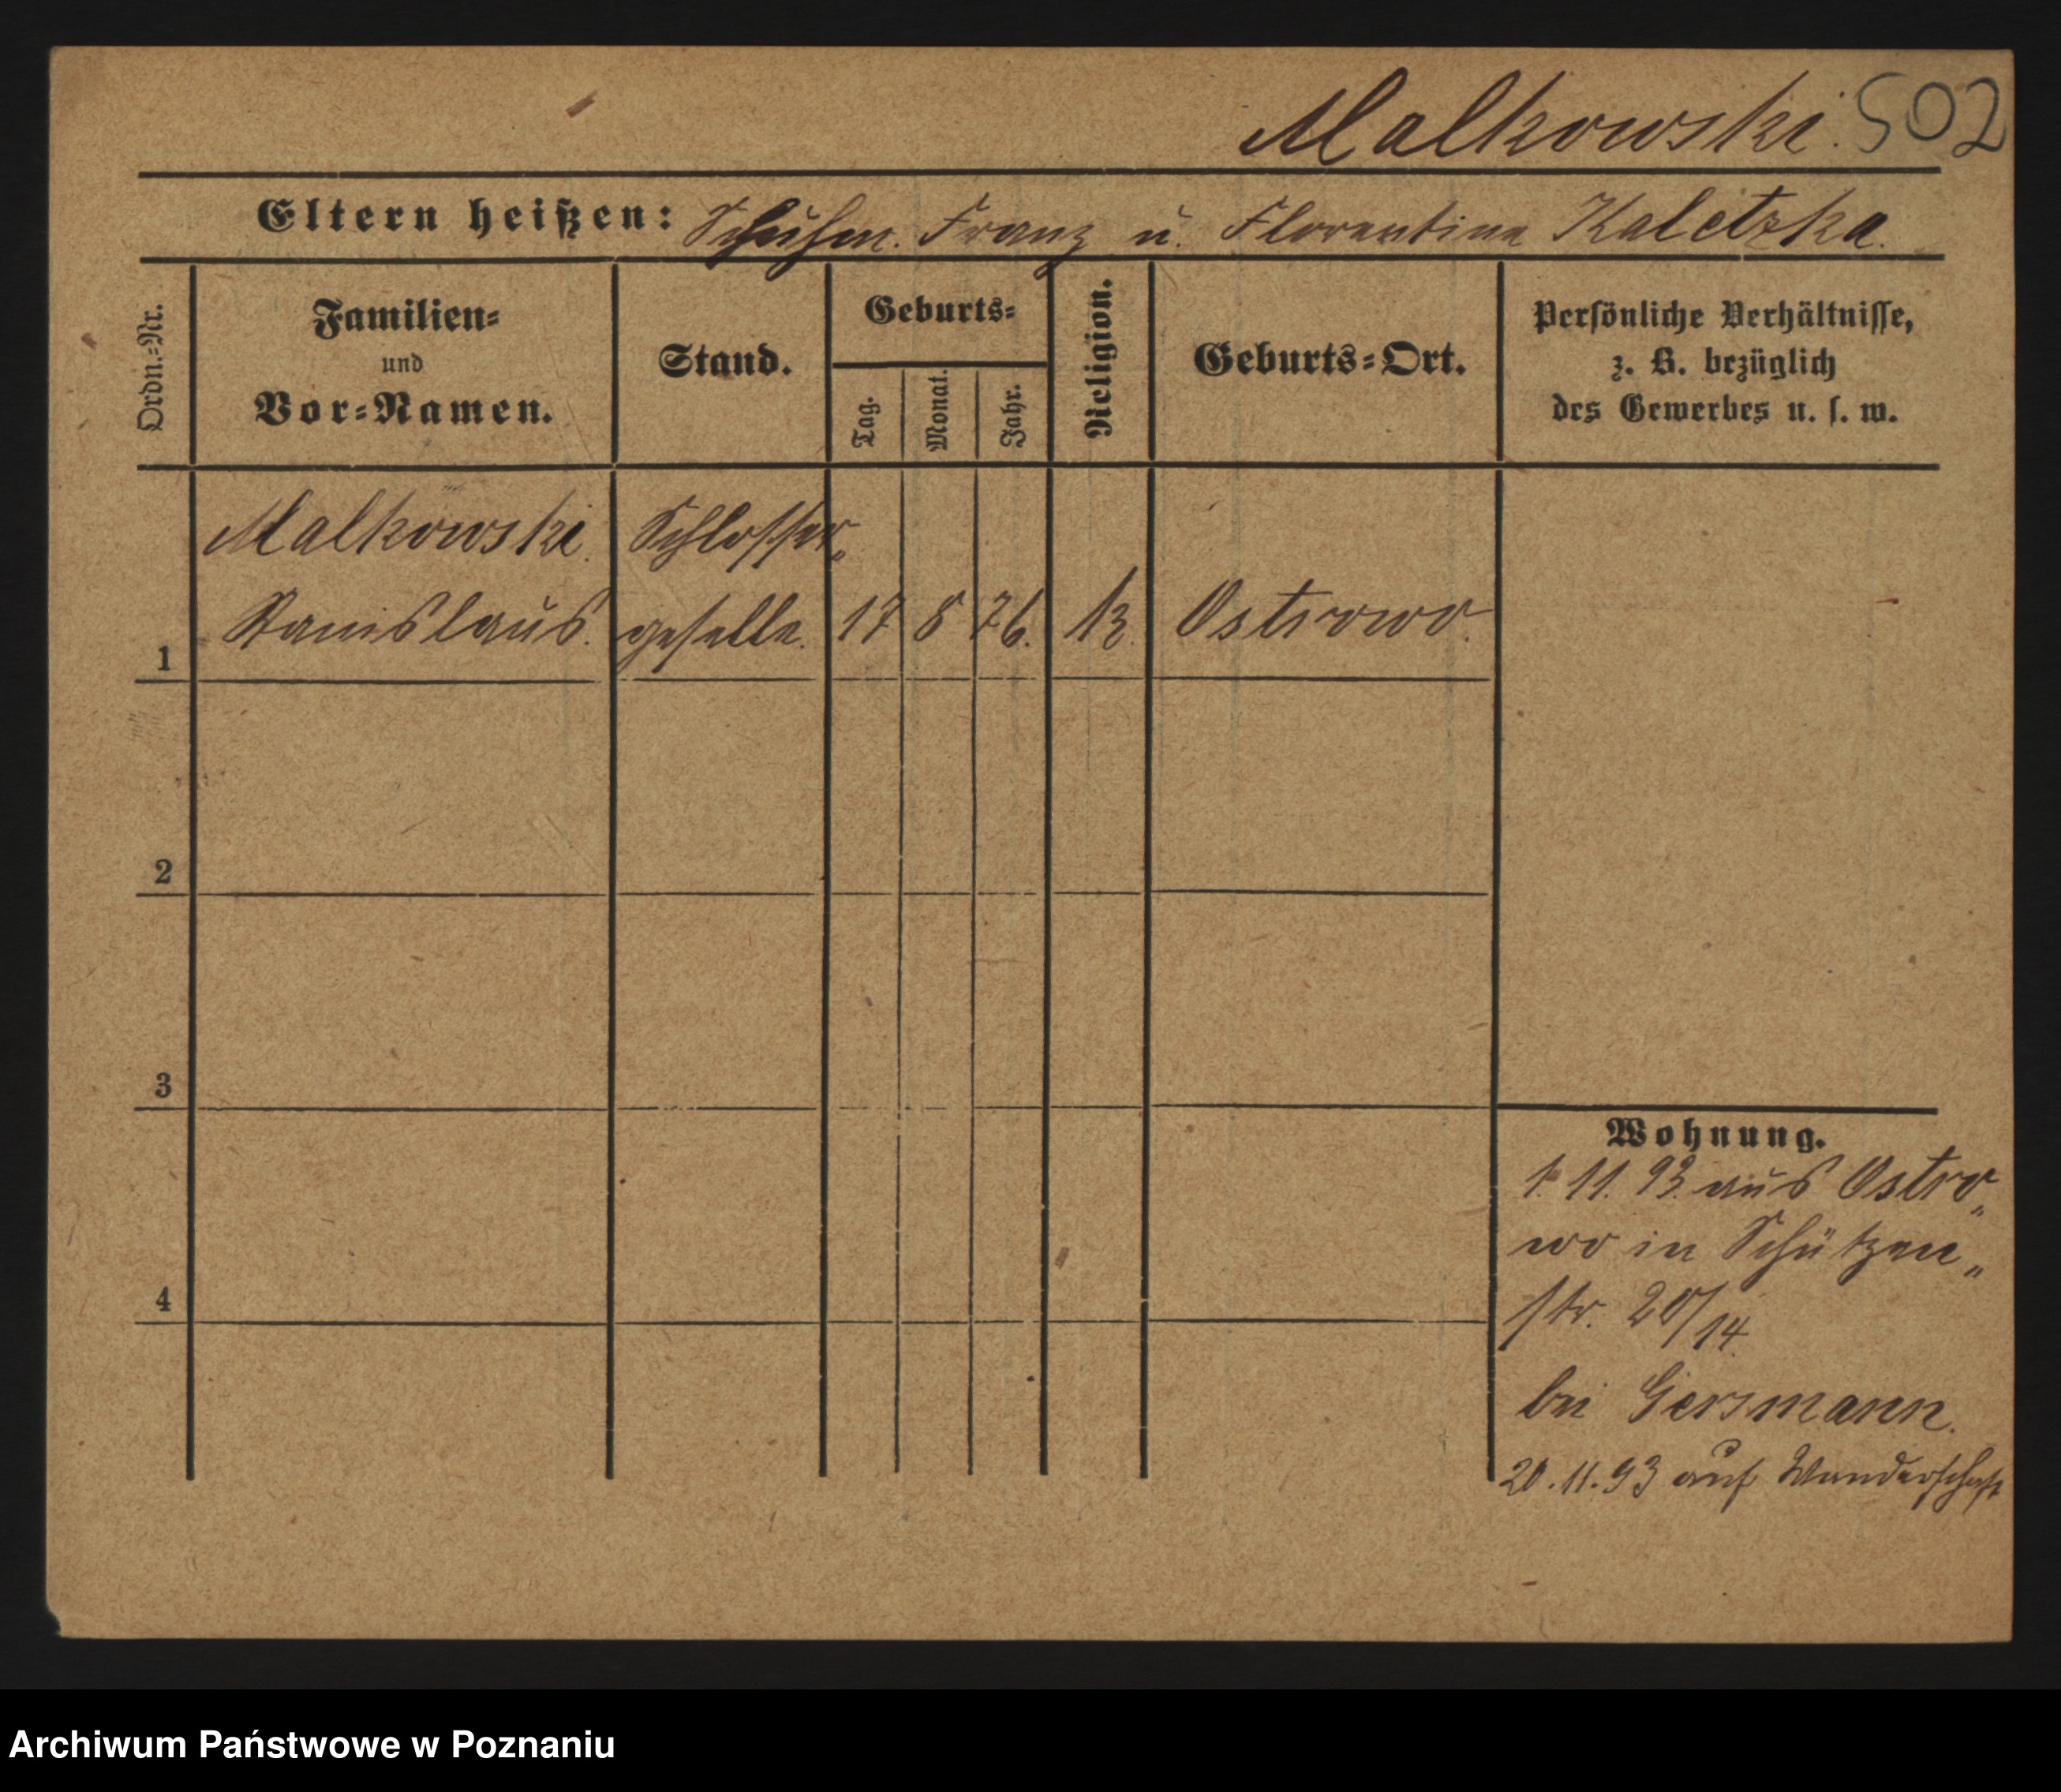 Malkowski. 502
Eltern heißen: Schuhm. Franz u. Florentine Kaletzka.
Ordn.=Nr.
Familien=
und
Vor=Namen.
Stand.
Geburts=
Tag.
Monat.
Jahr.
Religion.
Geburts=Ort.
Persönliche Verhältnisse,
z. B. bezüglich
des Gewerbes u. s. w.
Malkowski. Schlosser„
1 Stanislaus. geselle. 17 8 76. Ostrowo.
2
3
4
Wohnung.
1. 11. 93. aus Ostro„
wo in Schützen„
str. 20/14.
bei Gersmann.
20.11.93 auf Wanderschaft
Archiwum Państwowe w Poznaniu